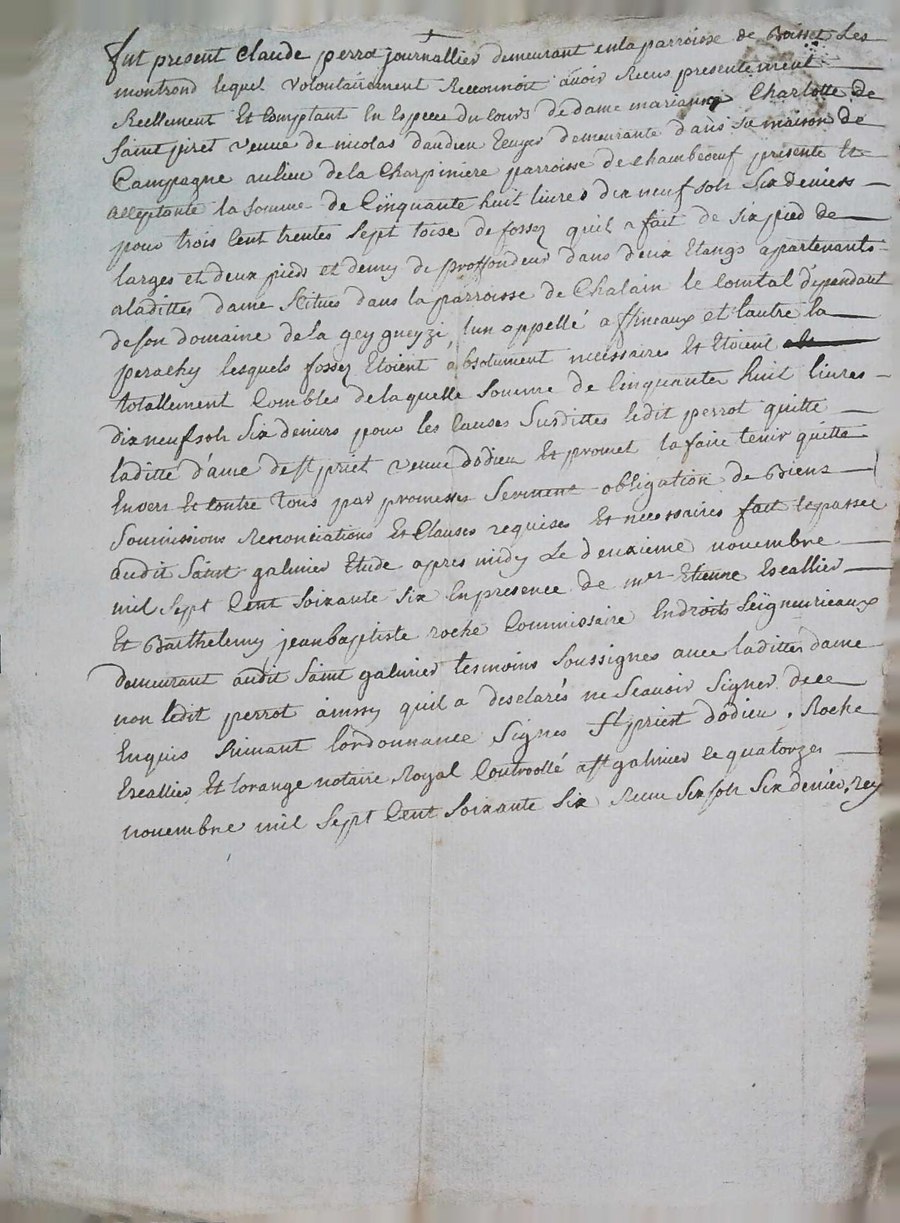 fut present Claude perrot journallier demeurant en la parroisse de Boisset Les
montrond lequel volontairement Reconnoit avoir Receus presentement
Reellement Et Comptant En Espece du Cours de dame marianne Charlotte de
Saint priet veuve de nicolas daudieu Ecuyer demeurante dans sa maison de
Campagne au lieu de la Charpiniere parroisse de Chambœuf presente Et
acceptante la Somme de Cinquante huit livres dix neuf sols Six deniers
pour trois Cent trentes Sept toise de fossez quil a fait de Six pied de
larges et deux pieds et demy de proffondeur dans deux Etangs apartenants
a laditte dame Scitués dans la parroisse de Chalain le Comtal dependant
de son domaine de la gey gneyzi, lun appellé affineaux et lautre la
perachy lesquels fossez Etoient absolument necessaires Et Etoient
totallement Combles de laquelle Somme de Cinquante huit livres
dix neuf sols Six deniers pour les Causes Surdittes ledit perrot quitte
laditte dame de st priet veuve dodieu Et promet la faire tenir quitte
Envers Et Contre tous par promesses Serment obligation de Biens
Soumissions Renonciations Et Clauses requises Et necessaires fait Et passé
audit Saint galmier Etude apres midy Le deuxieme novembre
mil Sept Cent Soixante Six En presence de mer Etienne Escallier
Et Barthelemy jean baptiste roche Commissaire En droits Seigneurieaux
demeurant audit Saint galmier tesmoins Soussignes avec laditte dame
non ledit perrot ainssy quil a desclarés ne Scavoir Signer de ce
Enquis Suivant lordonnance Signes St priest dodieu, Roche
Escallier Et lorange notaire Royal Controollé a st galmier le quatorze
novembre mil Sept Cent Soixante Six Receu Six sols Six denier, Rey